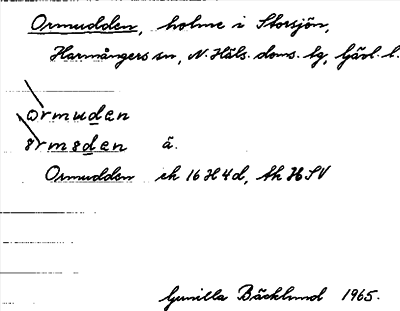 Ormudden, holme i Storsjön,
Harmångers sn, N. Häls. doms. tg, Gävl. l.
ormuden
ormsden ä.
Ormudden ek 16 H 4 d, hk H SV
Gunilla Bäcklund 1965.